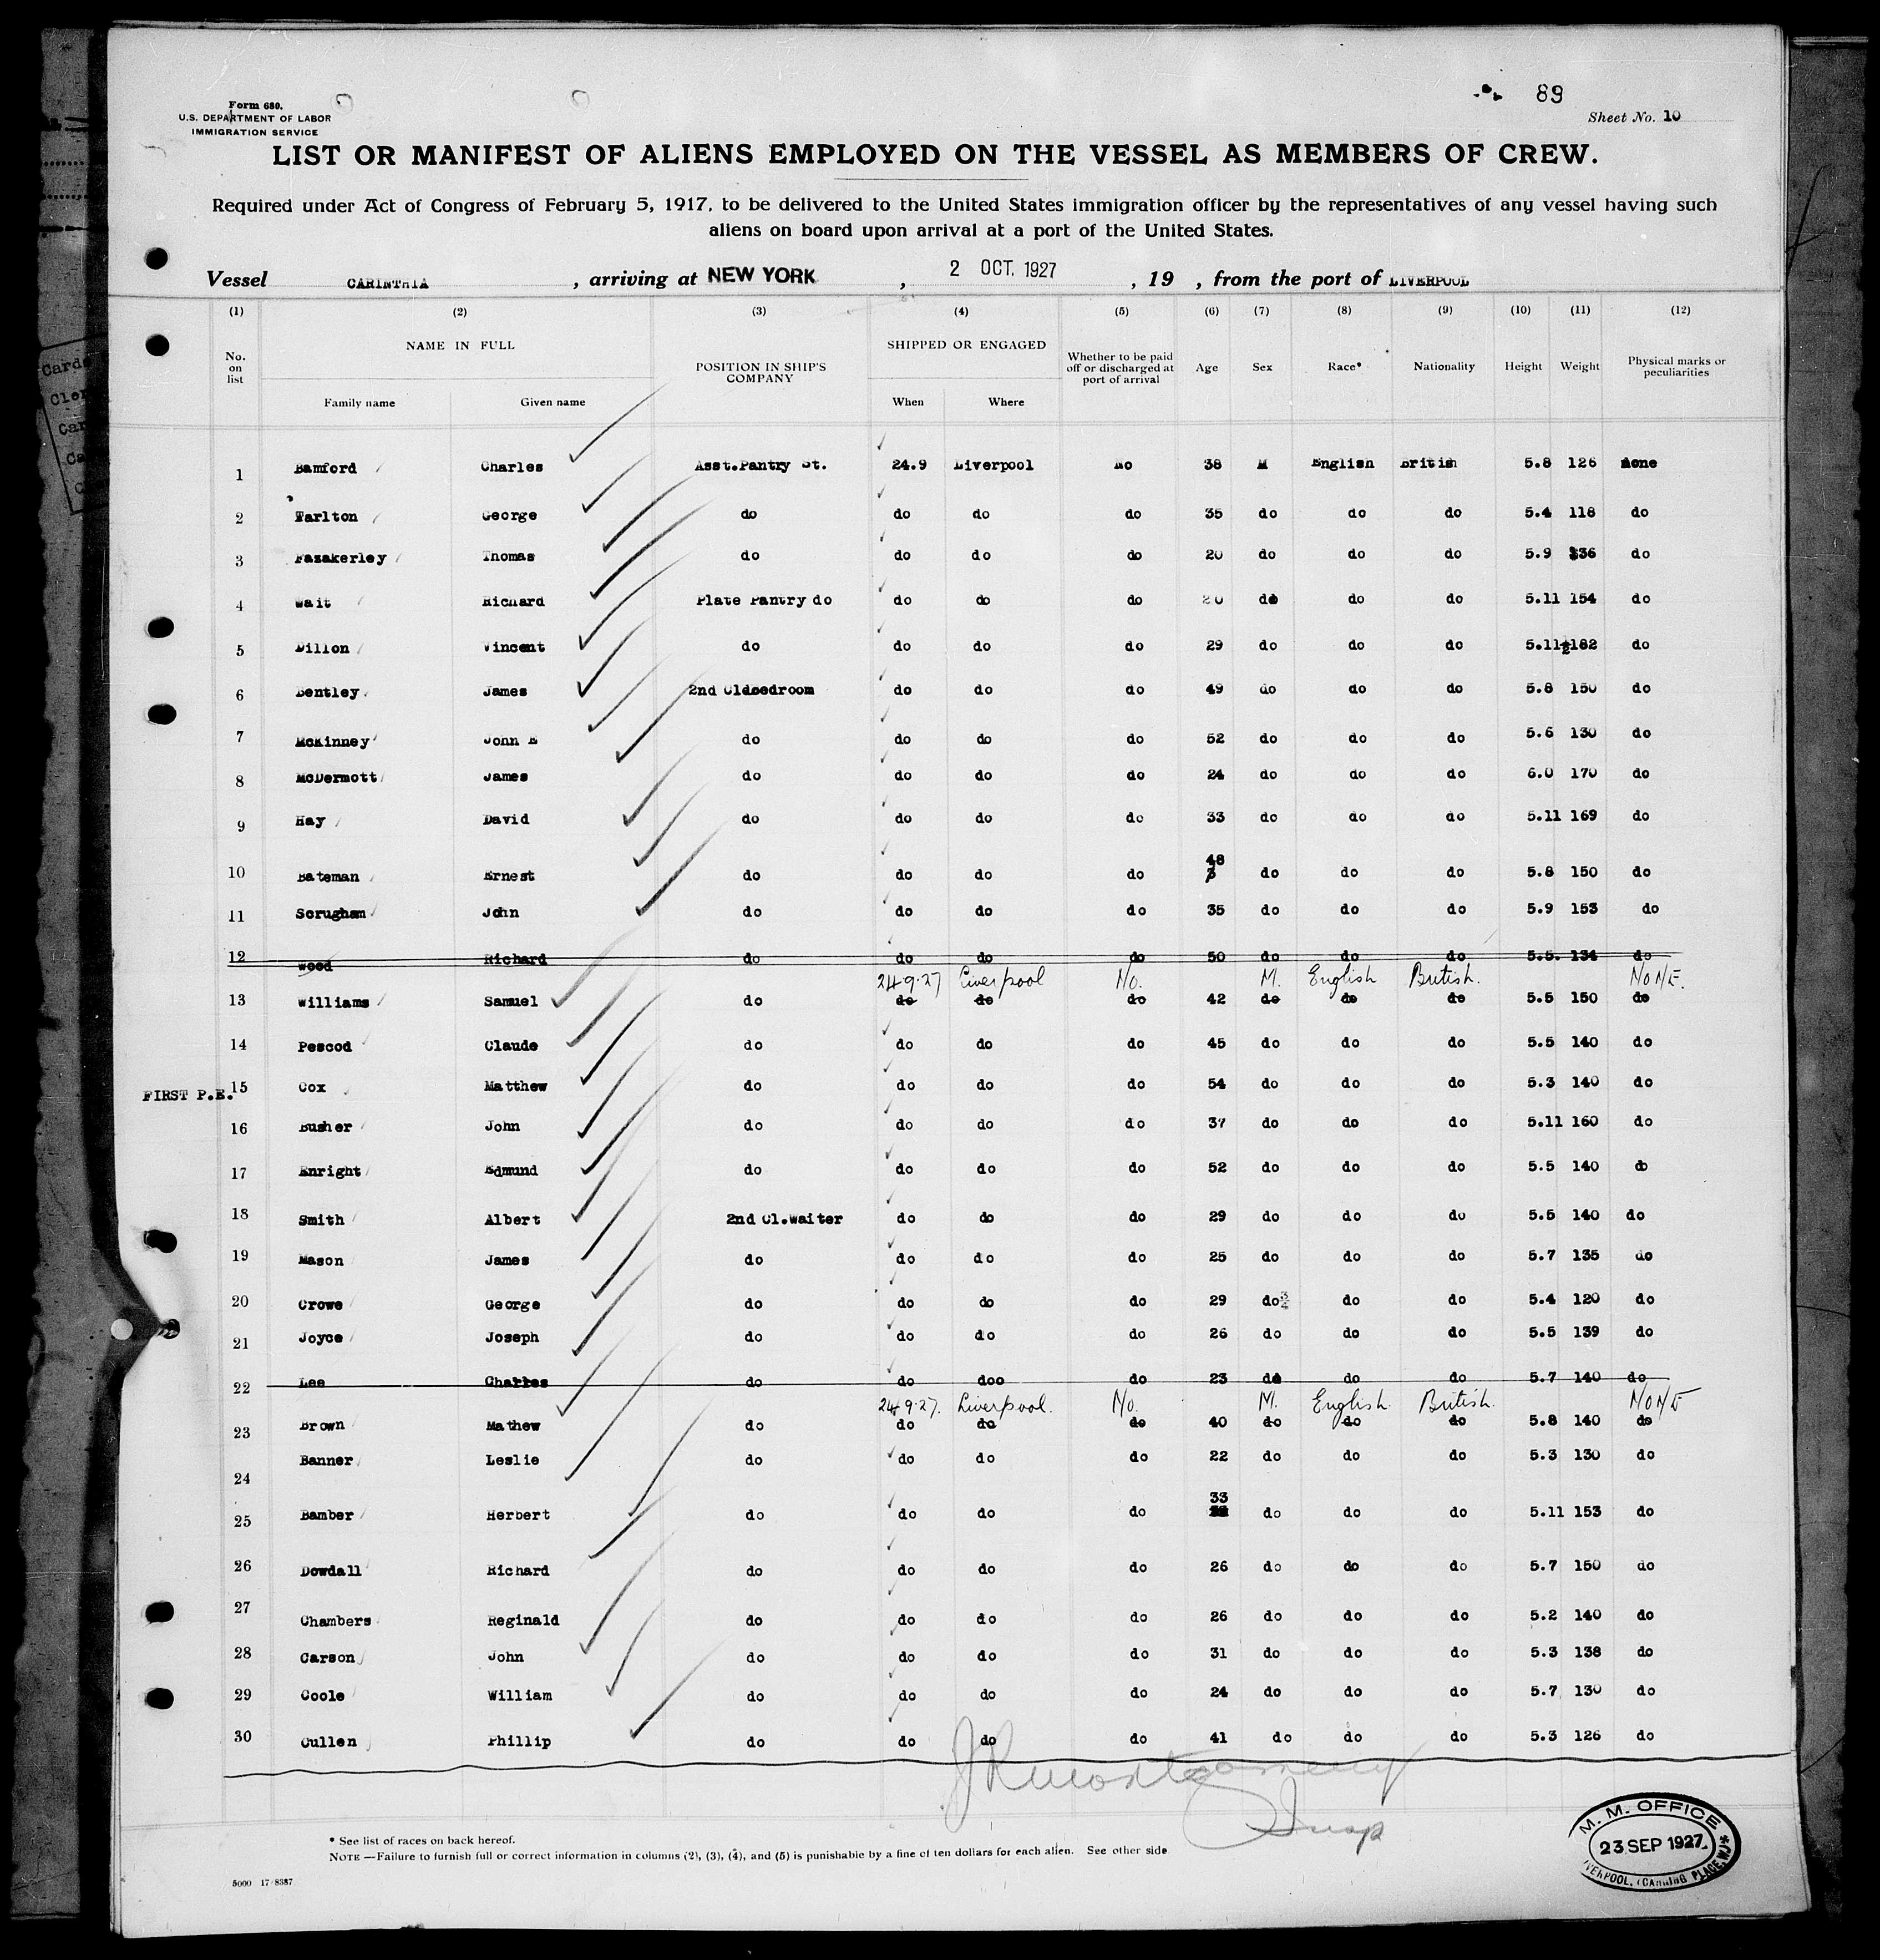 89
Form 680.
U.S. DEPARTMENT OF LABOR
IMMIGRATION SERVICE
Sheet No. 10
LIST OR MANIFEST OF ALIENS EMPLOYED ON THE VESSEL AS MEMBERS OF CREW.
Required under Act of Congress of February 5, 1917, to be delivered to the United States immigration officer by the representatives of any vessel having such
aliens on board upon arrival at a port of the United States.
Vessel CARINTHIA, arriving at NEW YORK, 2 OCT. 1927, 19 , from the port of LIVERPOOL
(1) (2) (3) (4) (5) (6) (7) (8) (9) (10) (11) (12)
No. on list NAME IN FULL POSITION IN SHIP'S COMPANY SHIPPED OR ENGAGED Whether to be paid off or discharged at port of arrival Age Sex Race* Nationality Height Weight Physical marks or peculiarities
Family name Given name When Where
1 Bamford Charles Asst.Pantry St. 24.9 Liverpool No 38 M English British 5.8 126 None
2 Tarlton George do do do do 35 do do do 5.4 118 do
3 Fazakerley Thomas do do do do 20 do do do 5.9 136 do
4 Wait Richard Plate Pantry do do do do 20 do do do 5.11 154 do
5 Dillon Vincent do do do do 29 do do do 5.11½ 182 do
6 Bentley James 2nd Clbedroom do do do 49 do do do 5.8 150 do
7 McKinney John E do do do do 52 do do do 5.6 130 do
8 McDermott James do do do do 24 do do do 6.0 170 do
9 Hay David do do do do 33 do do do 5.11 169 do
10 Bateman Ernest do do do do 48 do do do 5.8 150 do
11 Scrugham John do do do do 35 do do do 5.9 153 do
12 Wood Richard do do do do 50 do do do 5.5. 134 do
24.9.27 Liverpool No. M. English British. NONE.
13 Williams Samuel do do do do 42 do do do 5.5 150 do
14 Pescod Claude do do do do 45 do do do 5.5 140 do
FIRST P.E. 15 Cox Matthew do do do do 54 do do do 5.3 140 do
16 Busher John do do do do 37 do do do 5.11 160 do
17 Enright Edmund do do do do 52 do do do 5.5 140 do
18 Smith Albert 2nd Cl.waiter do do do 29 do do do 5.5 140 do
19 Mason James do do do do 25 do do do 5.7 135 do
20 Crowe George do do do do 29 do ¾ do do 5.4 120 do
21 Joyce Joseph do do do do 26 do do do 5.5 139 do
22 Lee Charles do do doo do 23 do do do 5.7 140 do
24.9.27. Liverpool. No. M. English. British. NONE
23 Brown Mathew do do do do 40 do do do 5.8 140 do
24 Banner Leslie do do do do 22 do do do 5.3 130 do
25 Bamber Herbert do do do do 33 do do do 5.11 153 do
26 Dowdall Richard do do do do 26 do do do 5.7 150 do
27 Chambers Reginald do do do do 26 do do do 5.2 140 do
28 Carson John do do do do 31 do do do 5.3 138 do
29 Coole William do do do do 24 do do do 5.7 130 do
30 Cullen Phillip do do do do 41 do do do 5.3 126 do
J R Montgomery
Insp
* See list of races on back hereof.
NOTE —Failure to furnish full or correct information in columns (2), (3), (4), and (5) is punishable by a fine of ten dollars for each alien. See other side
5000 17-8387
M. M. OFFICE
23 SEP 1927
LIVERPOOL, (CANNING PLACE,